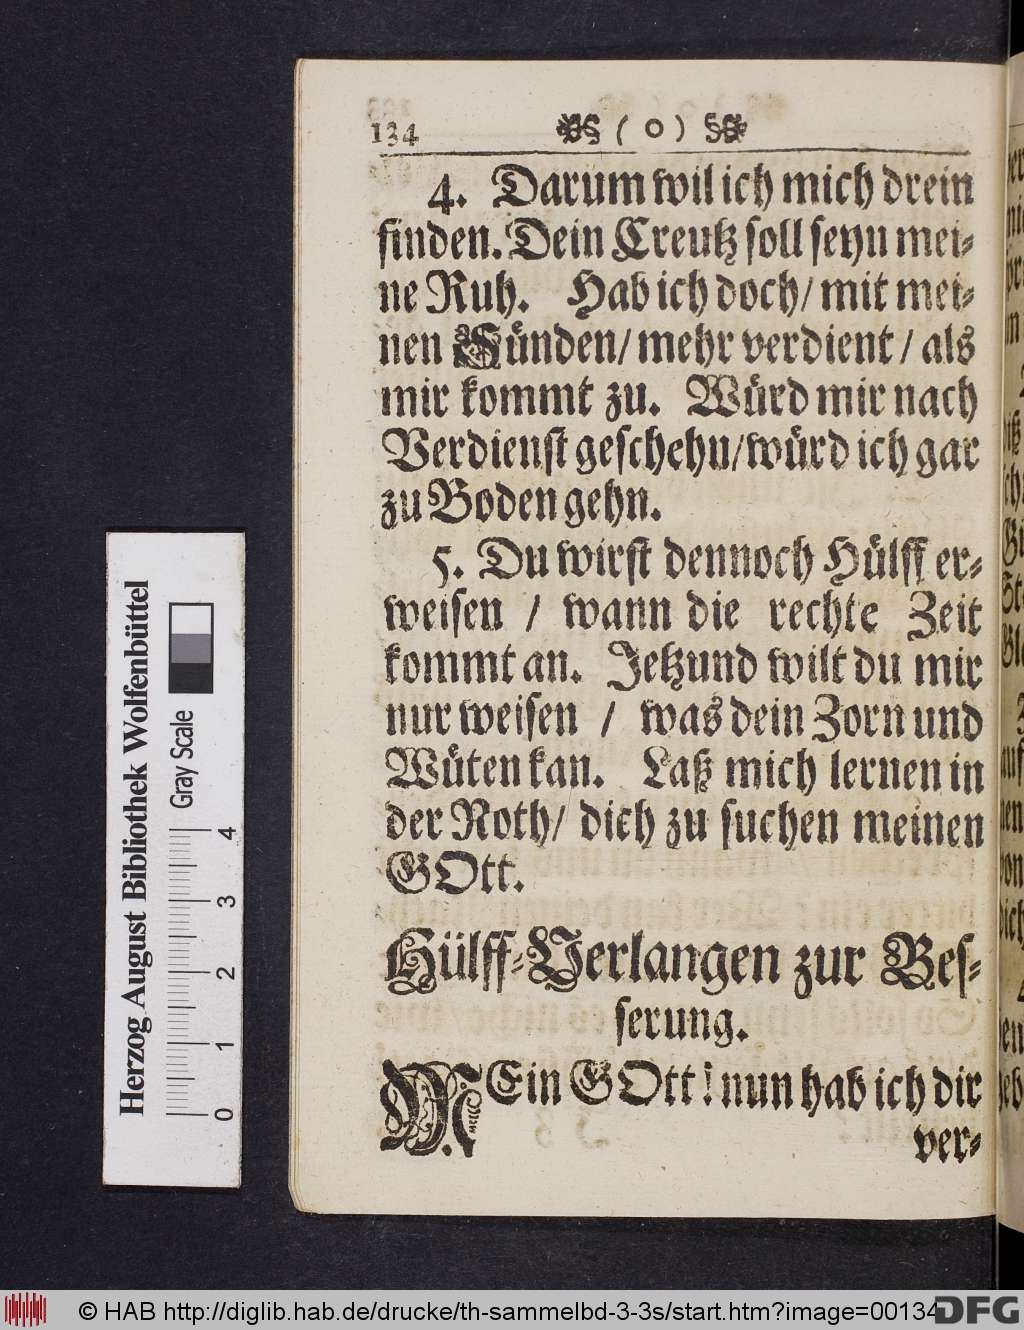 134 ( o )
4. Darum wil ich mich drein
finden. Dein Creutz soll seyn mei-
ne Ruh. Hab ich doch/ mit mei-
nen Sünden/ mehr verdient / als
mir kommt zu. Würd mir nach
Verdienst geschehn/würd ich gar
zu Boden gehn.
5. Du wirst dennoch Hülff er-
weisen / wann die rechte Zeit
kommt an. Jetzund wilt du mir
nur weisen / was dein Zorn und
Wüten kan. Laß mich lernen in
der Noth/ dich zu suchen meinen
GOtt.
Hülff-Verlangen zur Bes-
serung.
MEin GOtt! nun hab ich dir
ver-
Herzog August Bibliothek Wolfenbüttel
Gray Scale
0 1 2 3 4
© HAB http://diglib.hab.de/drucke/th-sammelbd-3-3s/start.htm?image=00134
DFG